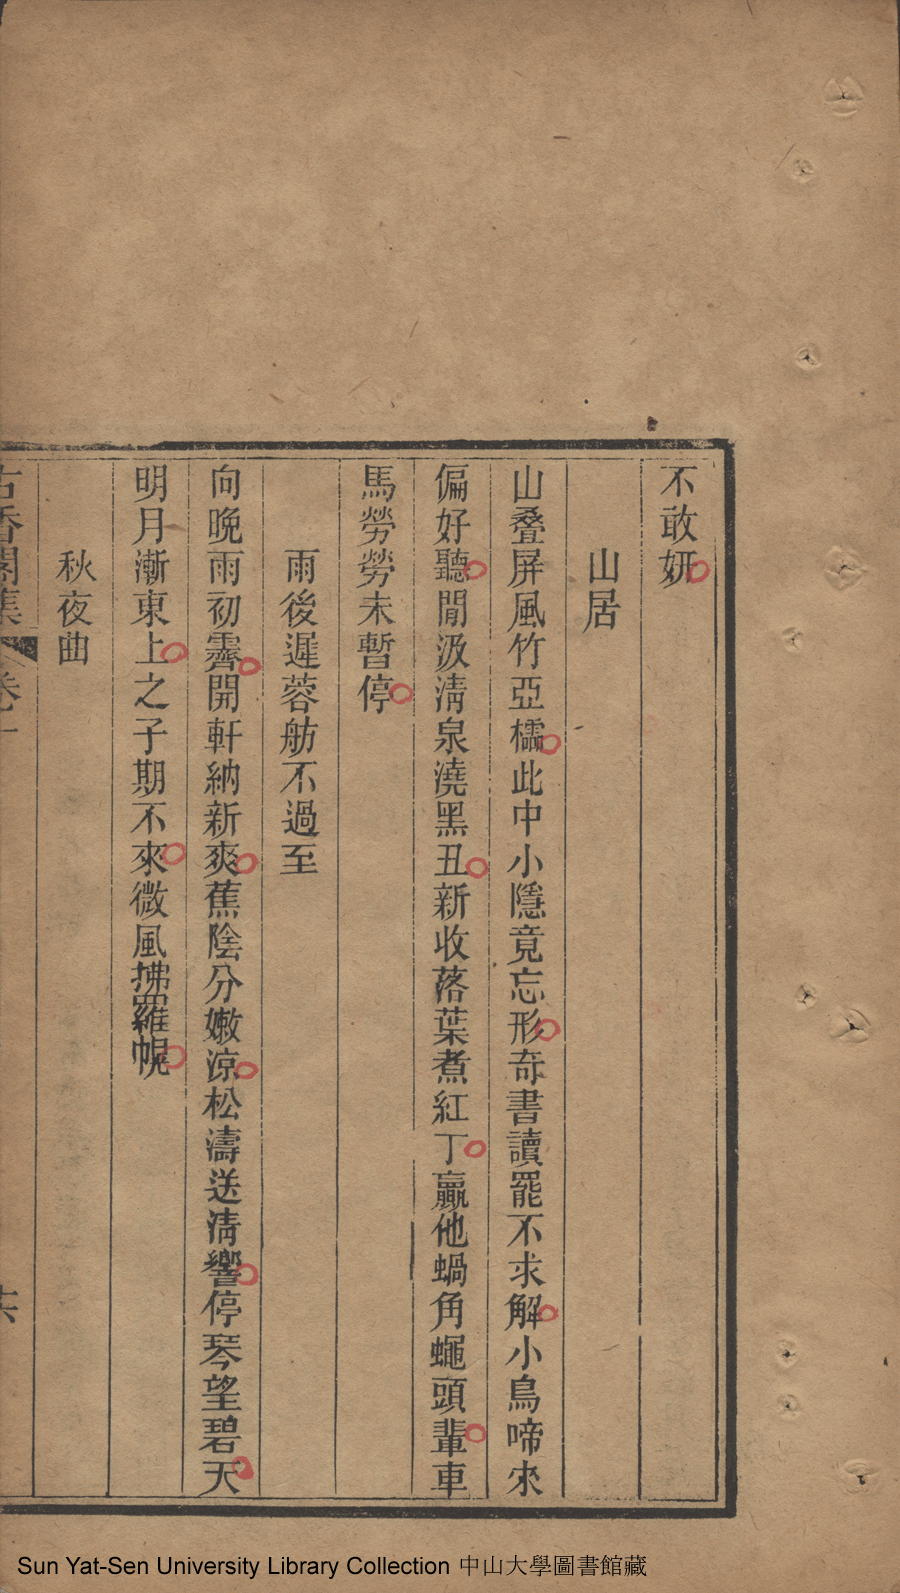 不敢妍
山居
山叠屏風竹亞櫺此中小隱竟忘形奇書讀罷不求解小鳥啼來
偏好聽閒汲清泉澆黑丑新收落葉煮紅丁贏他蝸角蠅頭輩車
馬勞勞未暫停
雨後遲蓉舫不過至
向晚雨初霽開軒納新爽蕉陰分嫩涼松濤送清響停琴望碧天
明月漸東上之子期不來微風拂羅幌
秋夜曲
古香閣集 卷一 六
Sun Yat-Sen University Library Collection 中山大學圖書館藏